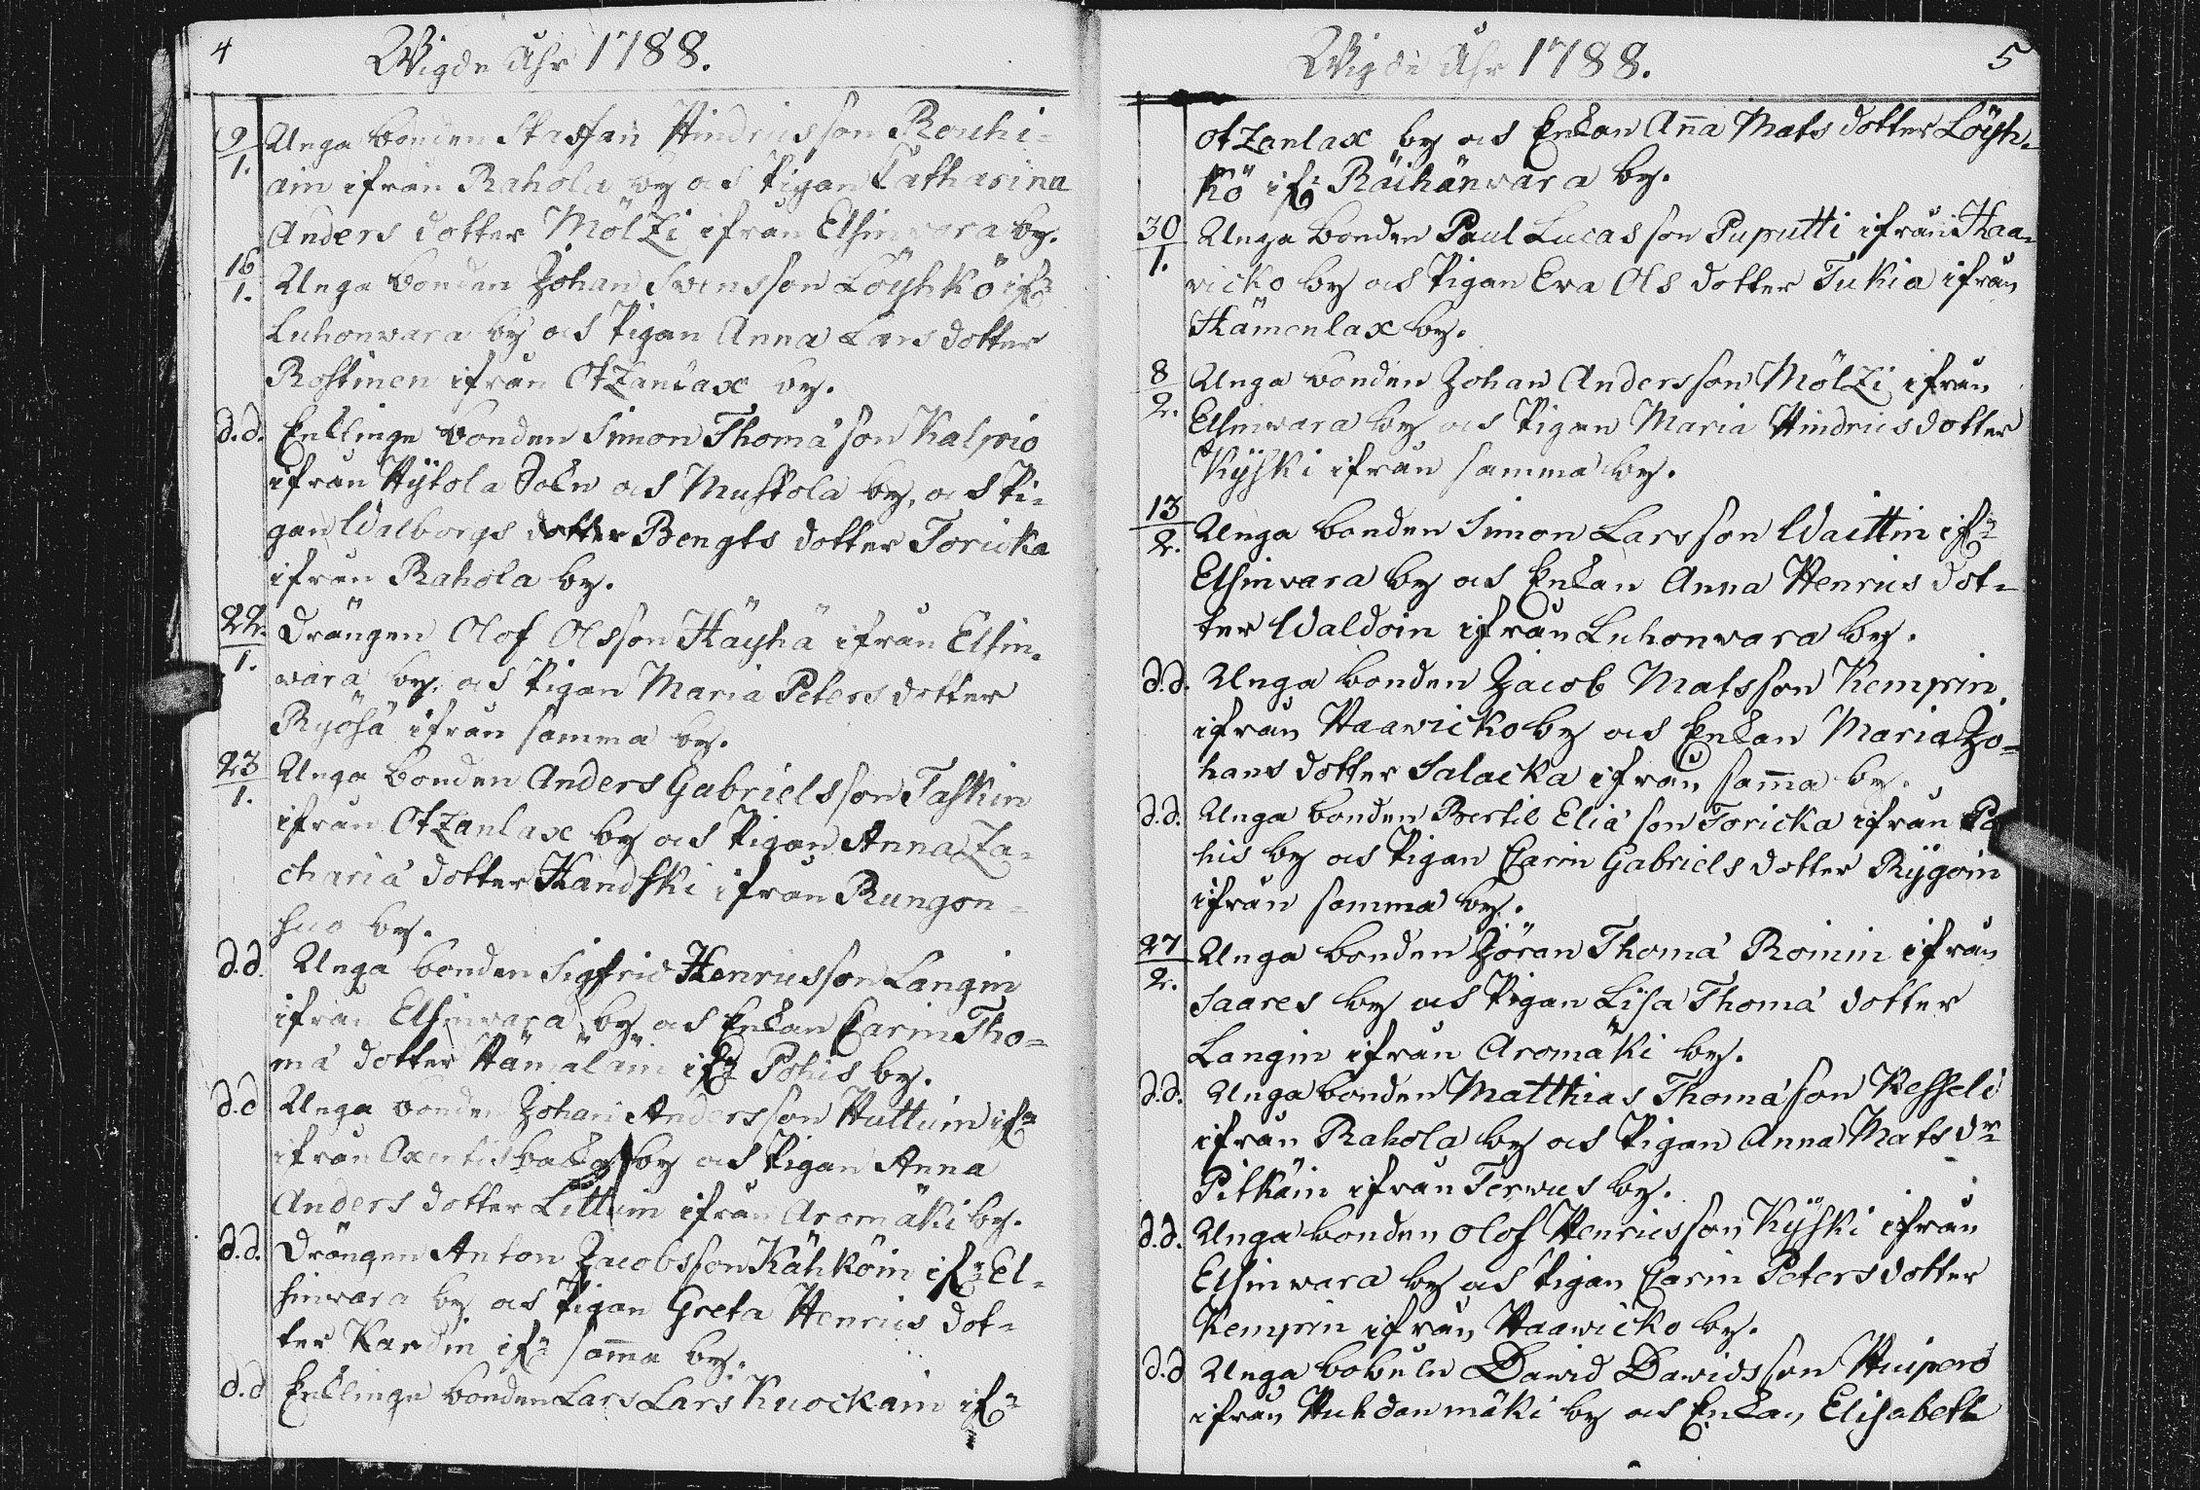 4
Wigde Åhr 1788.
9/1. Unga bonden Staffan Hindricsson Rouhi-
ain ifrån Rahola by och Pigan Catharina
Anders dotter Mölzi ifrån Elsinwara by.
16/1. Unga bonden Johan Svensson Löyhkö ifr:
Luhonwara by och Pigan Anna Lars dotter
Rostinen ifrån Otzanlax by.
d.d. Enklinge bonden Simon Thomæ son Kalpio
ifrån Hytola Sokn och Mustola by, och Pi-
gan Walborgs dotter Bengts dotter Toricka
ifrån Rahola by.
22./1. Drängen Olof Olsson Häyhä ifrån Elsin-
wara by, och Pigan Maria Peters dotter
Ryösä ifrån samma by.
23/1. Unga bonden Anders Gabrielsson Taskin
ifrån Otzanlax by och Pigan Anna Za-
chariæ dotter Handski ifrån Rungon-
suo by.
d.d. Unga bonden Sigfrid Henricsson Langin
ifrån Elsinwara by och Enkan Carin Tho-
mæ dotter Hämäläin ifr: Pohis by.
d.d Unga bonden Johan Andersson Huttuin ifr:
ifrån by och Pigan Anna
Anders dotter Littuin ifrån Aromäki by.
d.d. Drängen Anton Jacobsson Kähköin ifr: El-
sinwara by och Pigan Greta Henrics dot-
ter Kardin ifr: sam̄a by.
d.d Enklinge bonden Lars Lars Kuockain ifr:
Wigde Åhr 1788.
5
Otzanlax by och Enkan An̄a Mats dotter Löyh-
kö ifr: Räihänwara by.
30/1. Unga Bonden Paul Lucasson Puputti ifrån Haa-
wicko by och Pigan Eva Ols dotter Tukia ifrån
Hämenlax by.
8/2. Unga bonden Johan Andersson Mölzi ifrån
Elsinwara by och Pigan Maria Hindrics dotter
Kyÿski ifrån samma by.
13/2. Unga bonden Simon Larsson Waittin ifr:
Elsinwara by och Enkan Anna Henrics dot-
ter Waldoin ifrån Luhonwara by.
d.d. Unga bonden Jacob Matsson Kempin
ifrån Haawicko by och Enkan Maria Jo-
hans dotter Salacka ifrån sam̄a by.
d.d. Unga bonden Bertil Eliæ son Toricka ifrån Po
his by och Pigan Carin Gabriels dotter Rÿgoin
ifrån samma by.
27/2. Unga bonden Jöran Thomæ Roinin ifrån
Saares by och Pigan Lisa Thomæ dotter
Langin ifrån Aromäki by.
d.d. Unga bonden Matthias Thomæ son Kesseli
ifrån Rahola by och Pigan Anna Mats dr:
Pitkäin ifrån Terwus by.
d.d. Unga bonden Olof Henricsson Kÿski ifrån
Elsinwara by och Pigan Carin Petersdotter
Kempin ifrån Haawicko by.
d.d Unga Dawid Dawidsson Huipero
ifrån Huhdanmäki by och Enkan Elisabeth